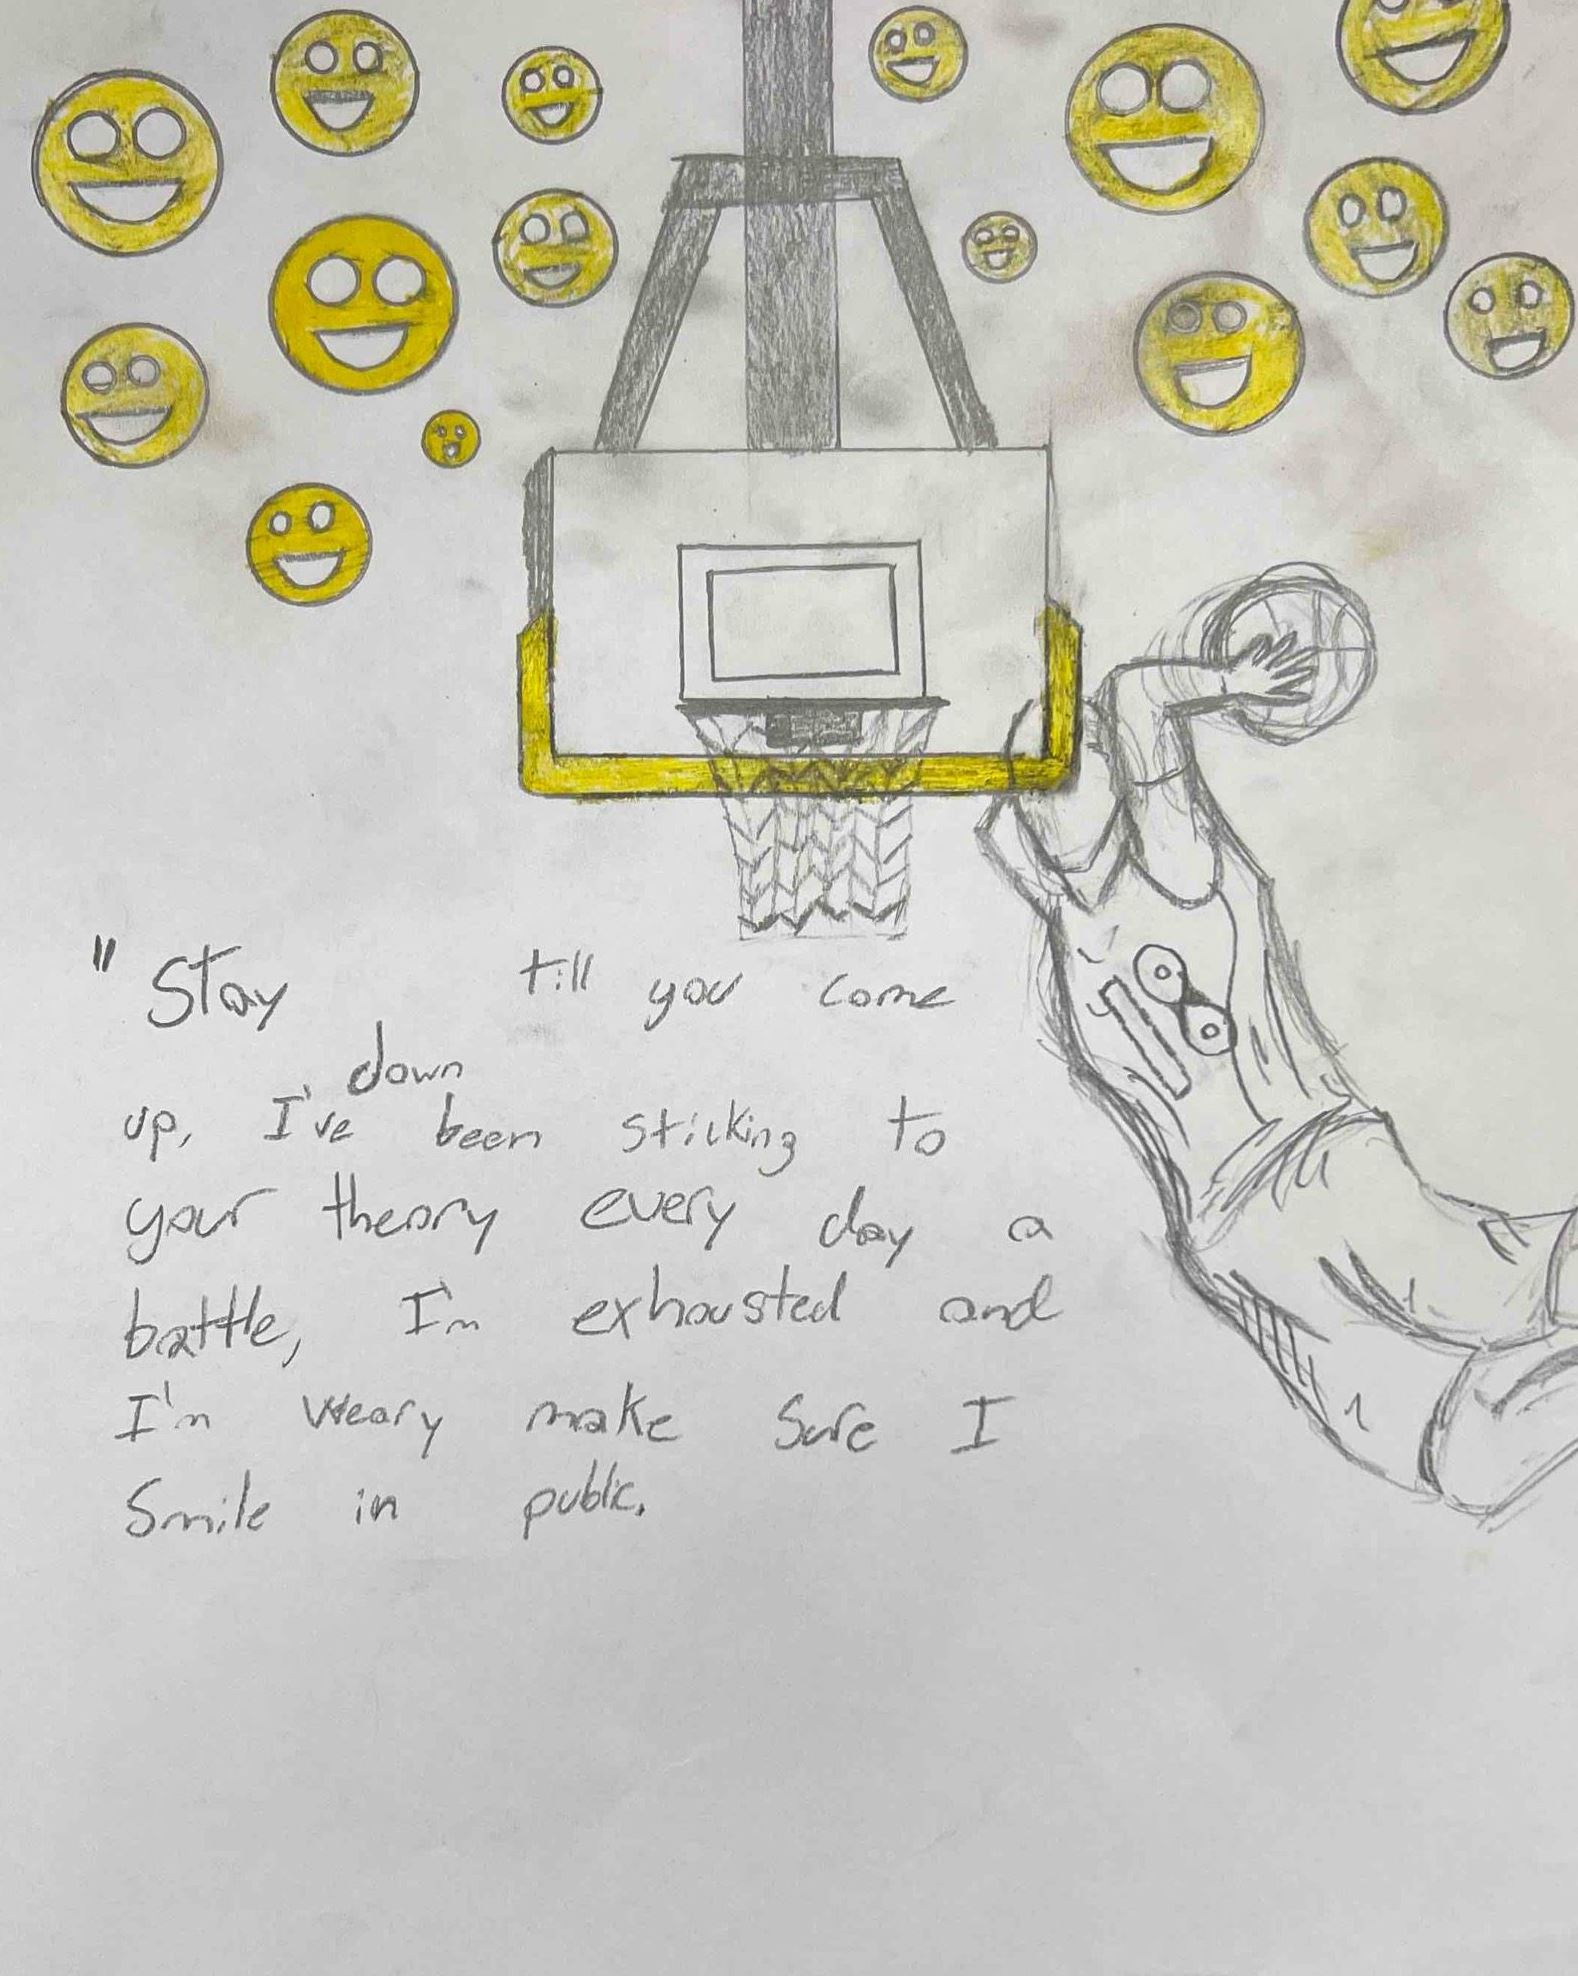 " Stay down till you come
up, I've been sticking to
your theory every day a
battle, I'm exhausted and
I'm weary make sure I
Smile in public.
18